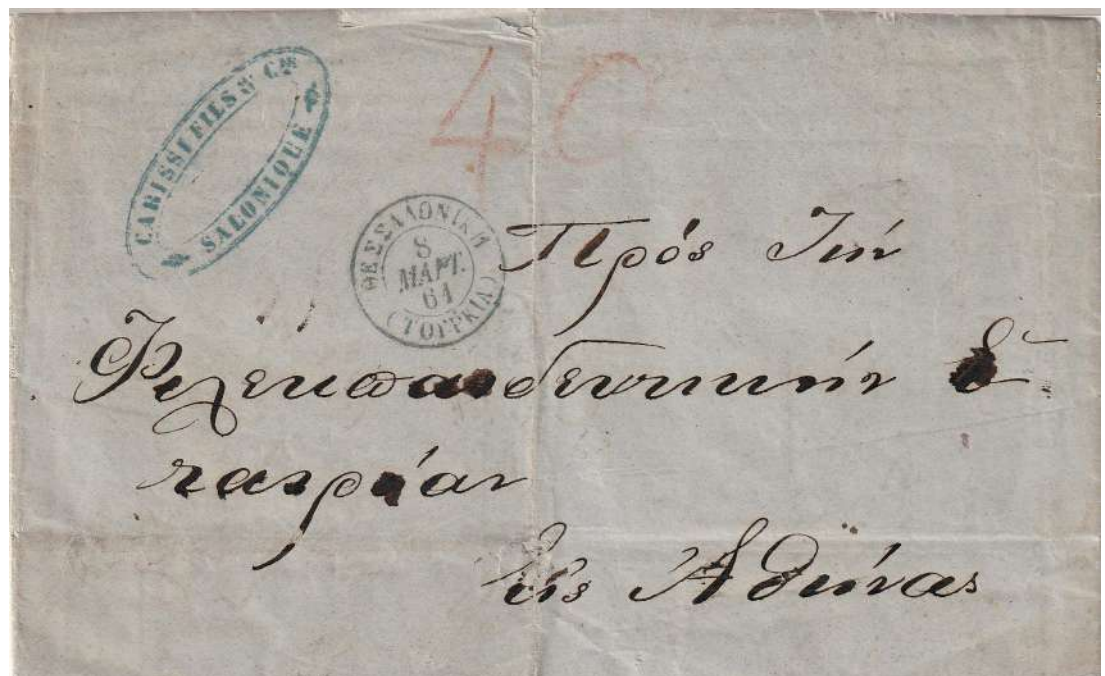 CARISSI FILS & Cie
SALONIQUE
40
ΘΕΣΣΑΛΟΝΙΚΗ
8
ΜΑΡΤ.
61
(ΤΟΥΡΚΙΑ)
Πρός Τήν
Φιλεκπαιδευτικήν Ἑ
ταιρίαν
εἰς Ἀθήνας